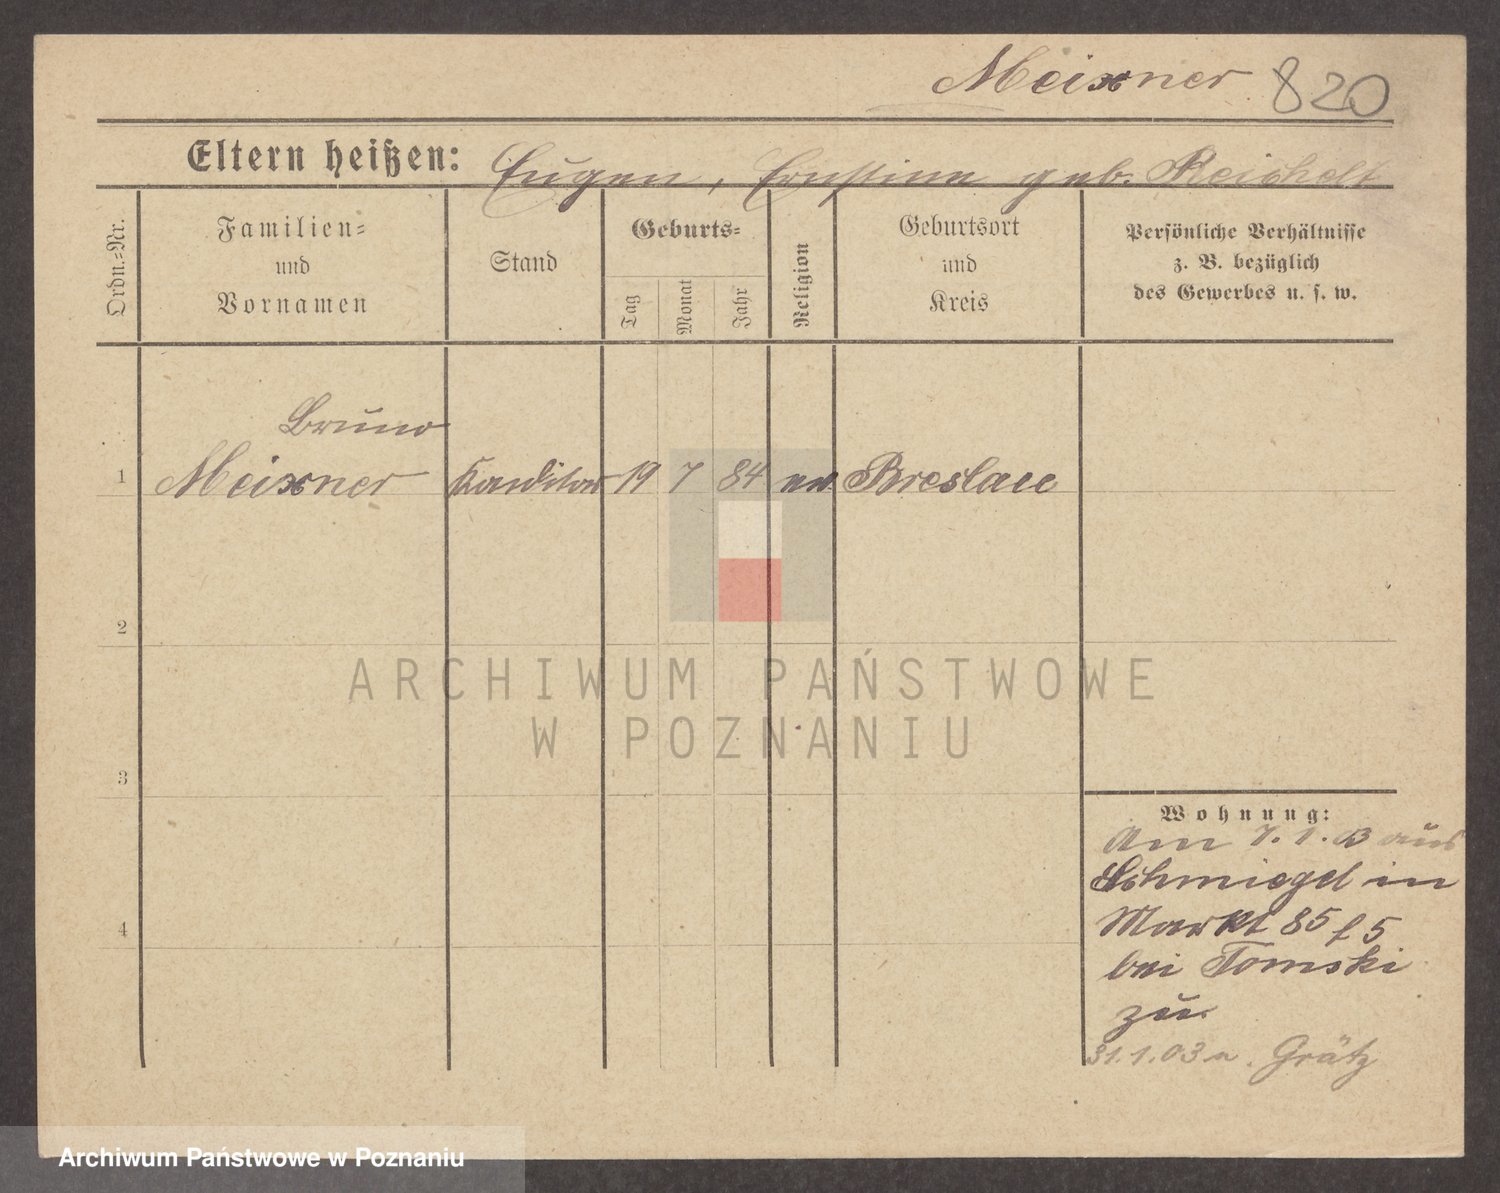 Meixner 820
Eltern heißen: Eugen, Ernstine geb. Reichelt
Ordn.=Nr.
Familien=
und
Vornamen
Stand
Geburts=
Tag
Monat
Jahr
Religion
Geburtsort
und
Kreis
Persönliche Verhältnisse
z. B. bezüglich
des Gewerbes u. s. w.
Bruno
1 Meixner Konditor 19 7 84 ev. Breslau
2
3
4
ARCHIWUM PAŃSTWOWE
W POZNANIU
Wohnung:
Am 7.1.03 aus
Schmiegel in
Markt 85 f 5
bei Tomski
zu.
31.1.03 n. Grätz
Archiwum Państwowe w Poznaniu